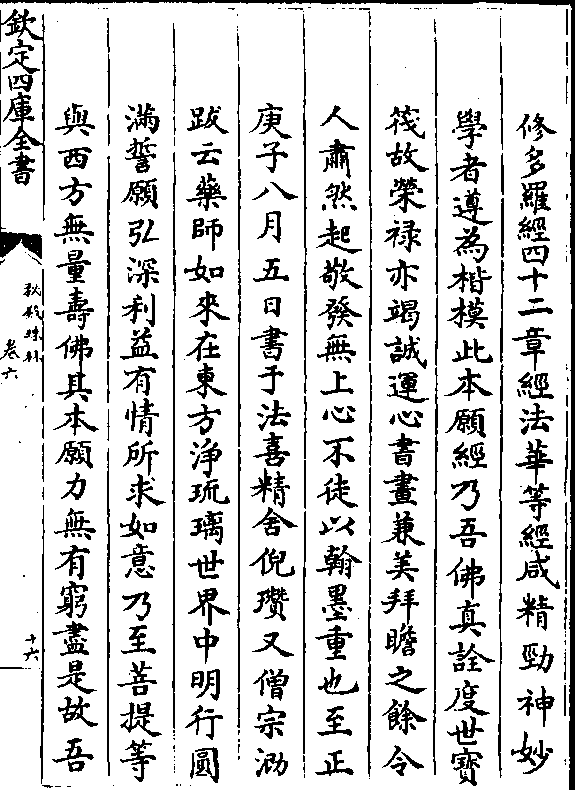 修多羅經四十二章經法華等經咸精勁神妙
學者遵為楷模此本願經乃吾佛真詮度世寶
筏故榮禄亦竭誠運心書畫兼美拜瞻之餘令
人肅然起敬發無上心不徒以翰墨重也至正
庚子八月五日書于法喜精舍倪瓚又僧宗泐
跋云藥師如來在東方浄琉璃世界中明行圓
滿誓願弘深利益有情所求如意乃至菩提等
與西方無量壽佛具本願力無有窮盡是故吾
欽定四庫全書
秘殿珠林
卷六
十六